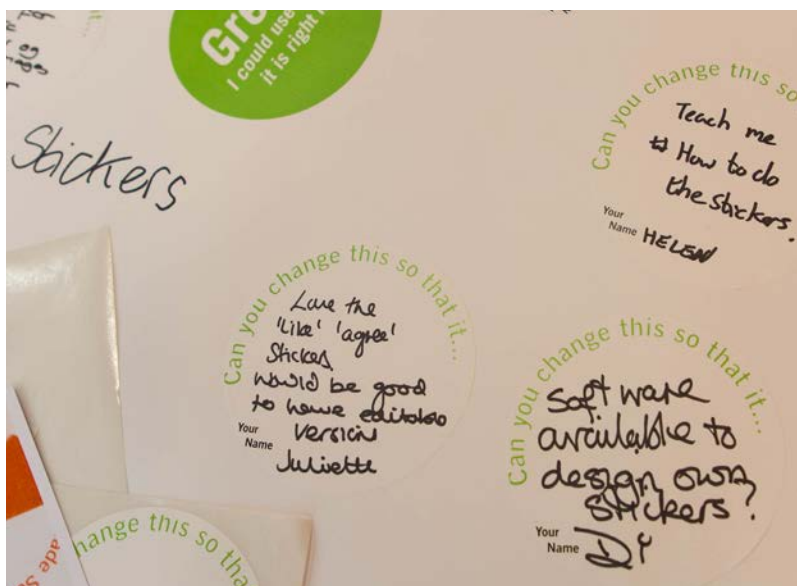 Gre
I could use
it is right
Stickers
Can you change this so
Teach me
How to do
the stickers.
Your
Name HELEN
Can you change this so that it...
Love the
'Like' 'agree'
Sticker
would be good
to have editable
version
Your
Name
Juliette
Can you change this so that it...
software
available to
design own
stickers?
Your
Name Di
hange this so tha
ade S